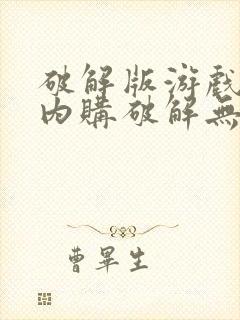 破解版游戏
内購破解無
曹畢生